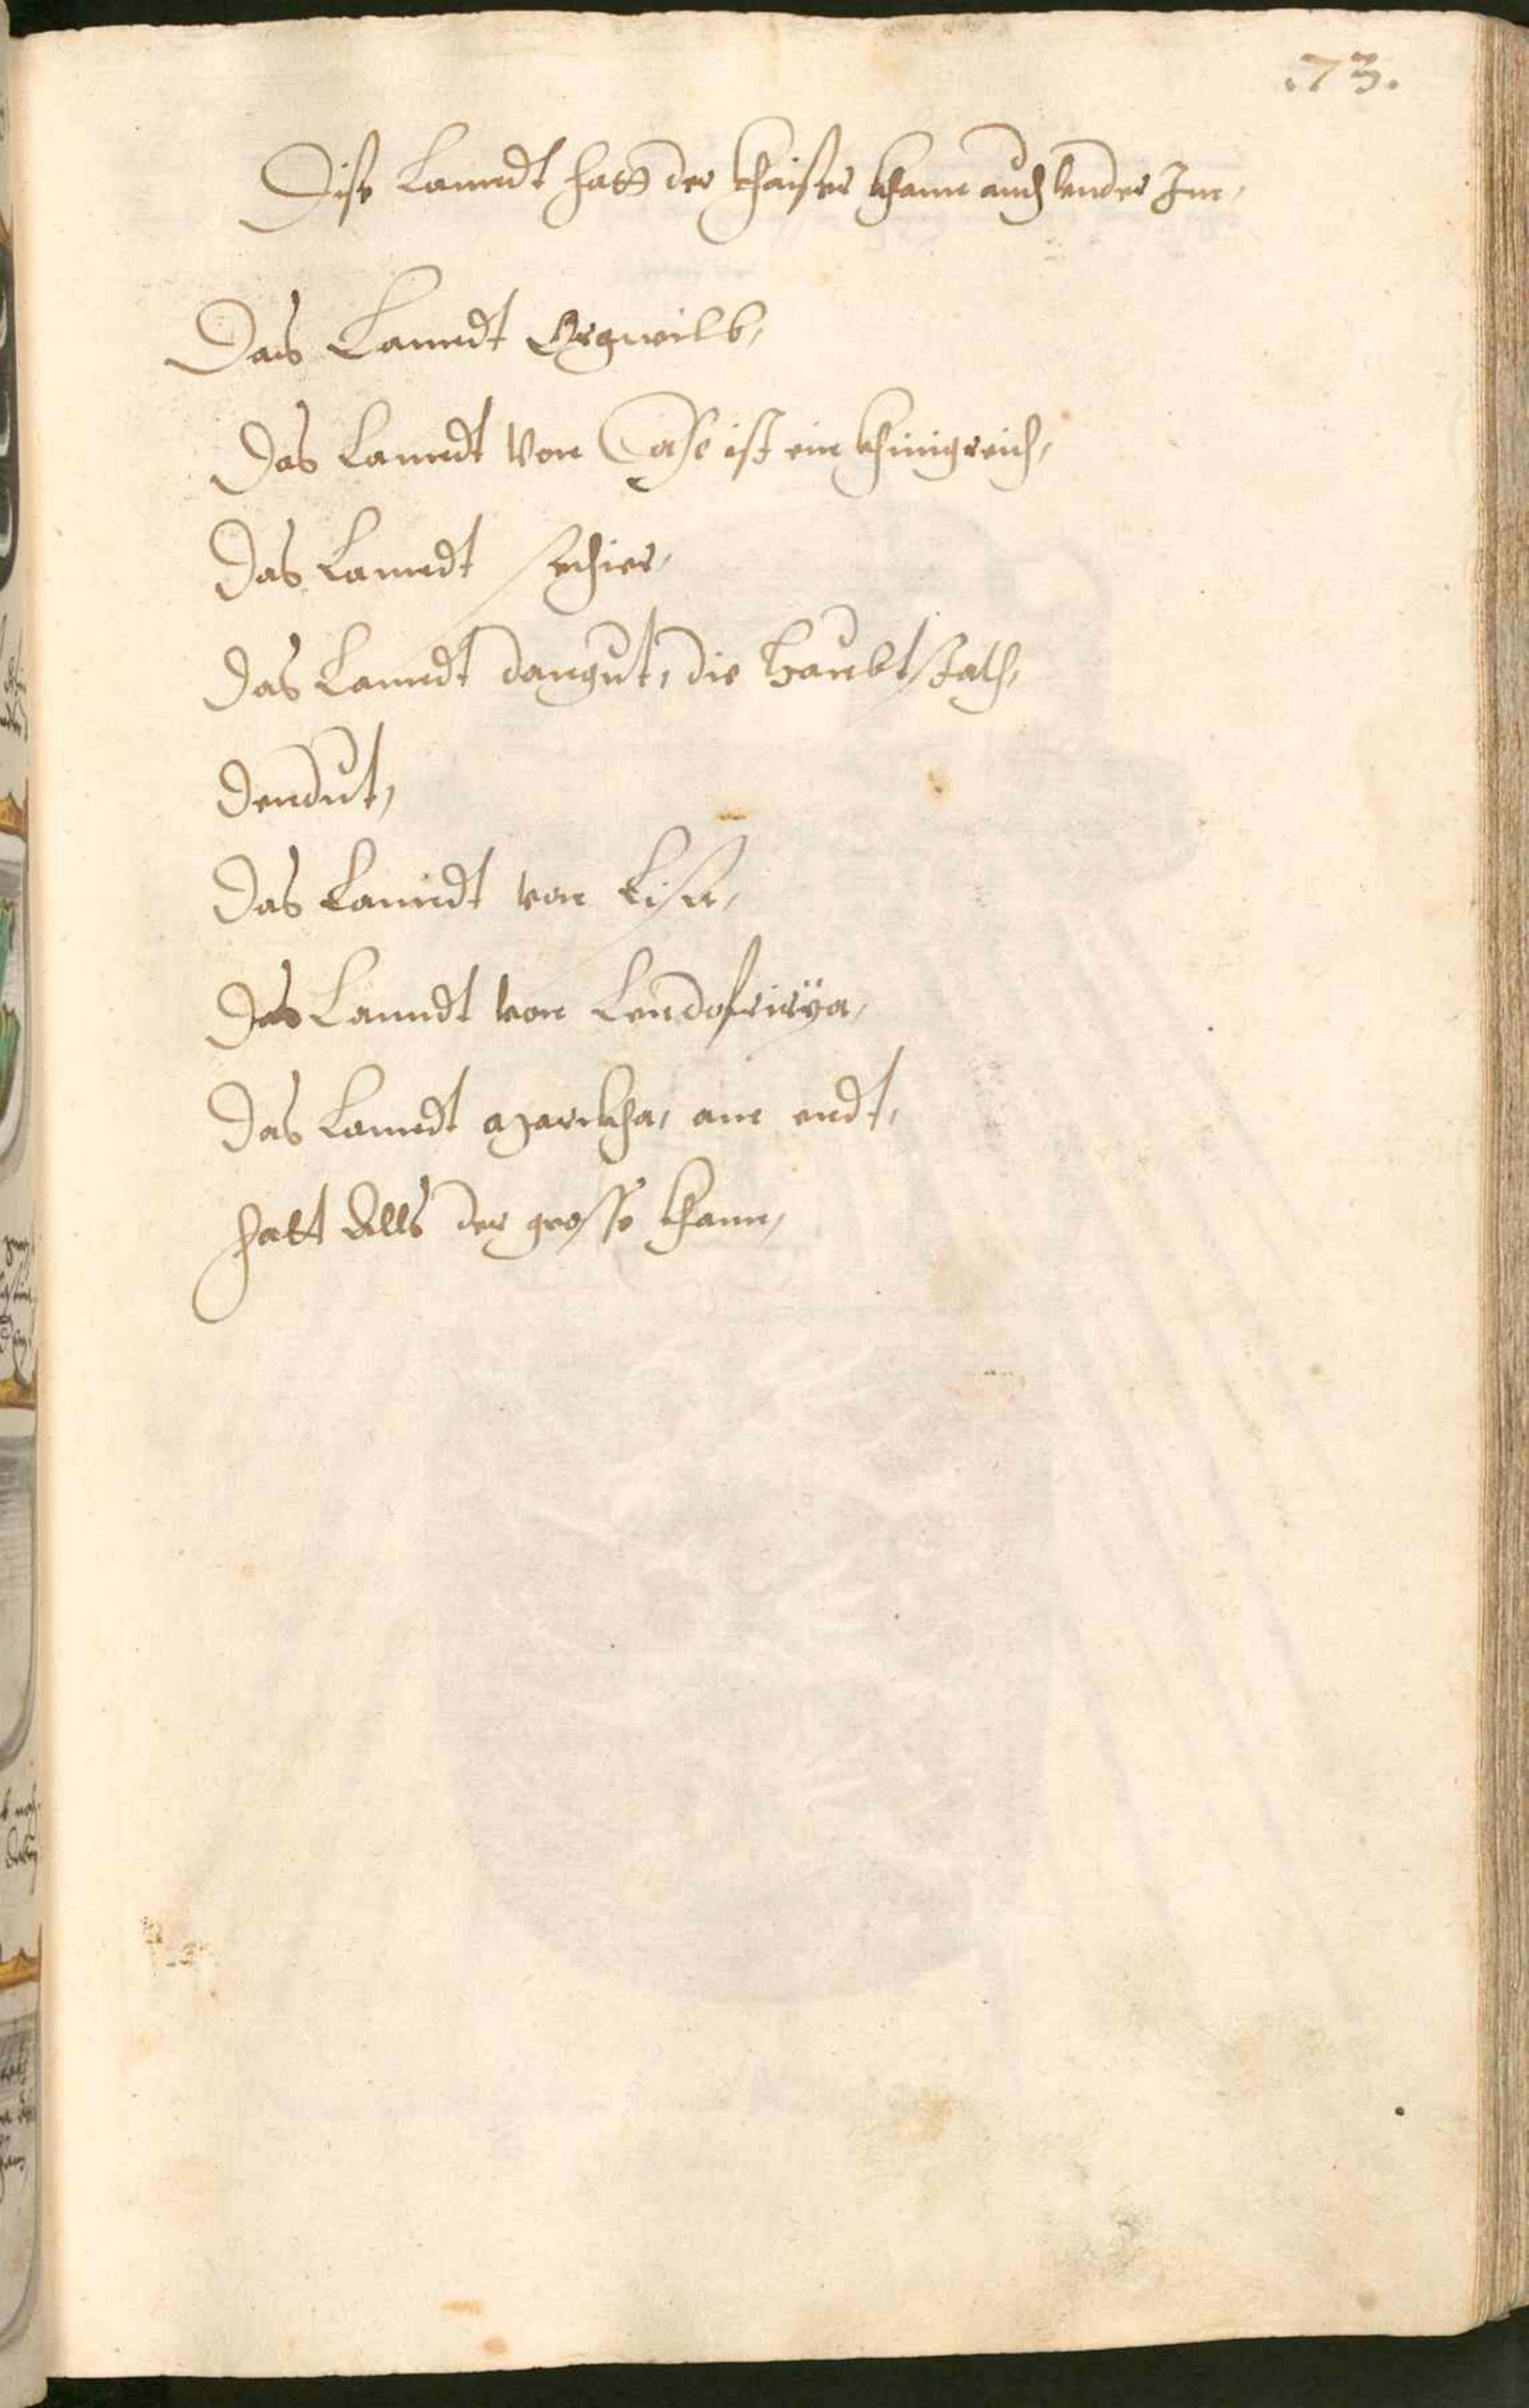 .73.
Dise Lanndt hatt der khaiser khann auch vnder Im,
Das Lanndt Ergwilb,
Das Lanndt von Case ist ein khinigreich,
Das Lanndt sechier,
Das Lanndt dangut, die Haubtstath,
Dendut,
Das Lanndt von Lisa,
Das Lanndt von Lendofrirÿa,
Das Lanndt azarickha, am endt,
hatt Alls der grosse khann,